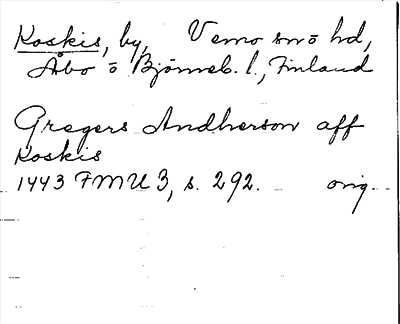 Koskis, by, Vemo snö hd,
Åbo o Björneb. l., Finland
Gregers Andherson aff
Koskis
1443 FMU 3, s. 292. orig.